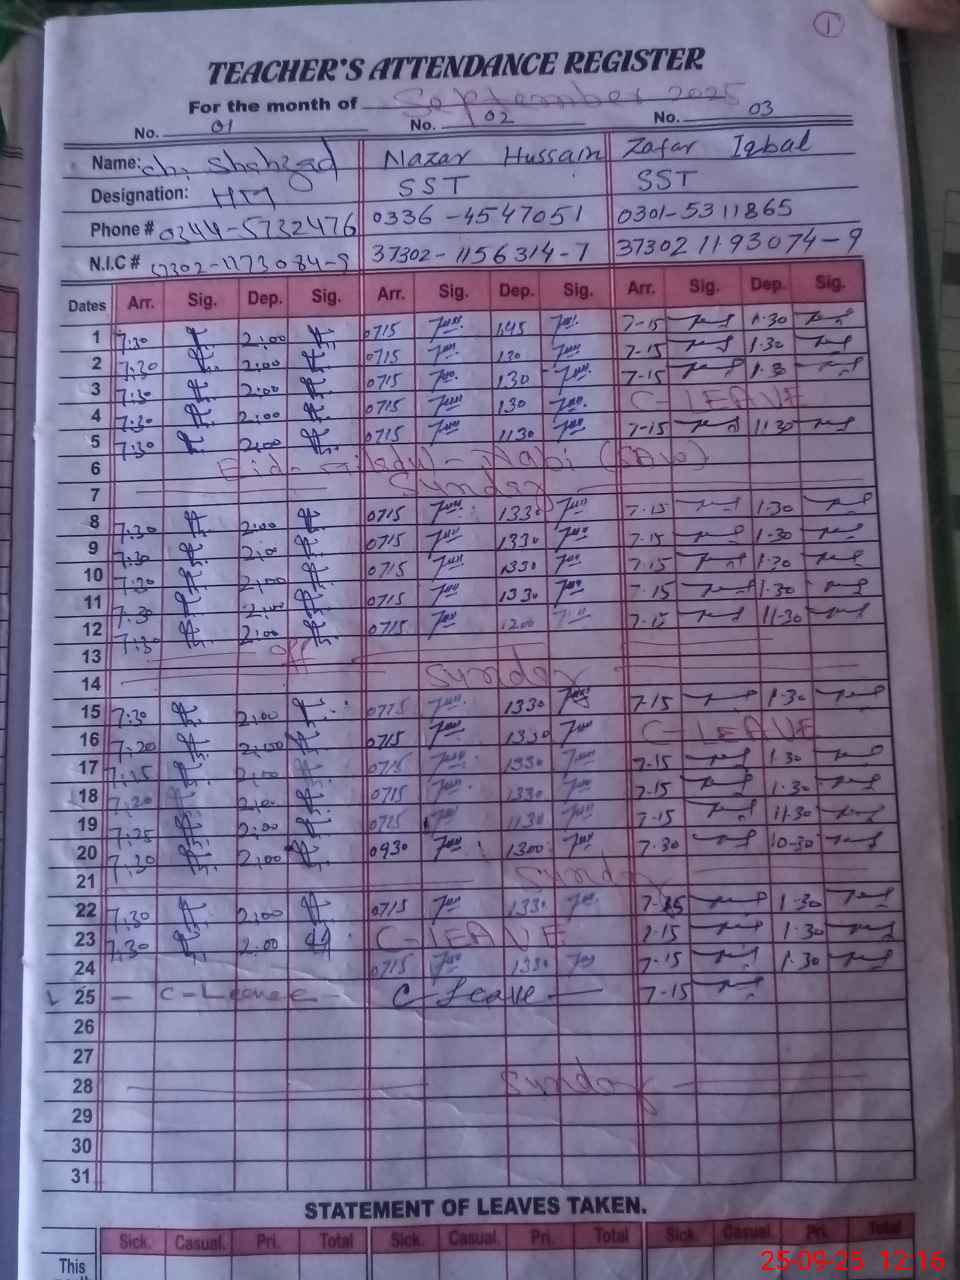 1
TEACHER'S ATTENDANCE REGISTER
For the month of September 2025
No. 01 No. 02 No. 03
Name: Ch. Shahzad Nazar Hussain Zafar Iqbal
Designation: HM SST SST
Phone # 0344-5732476 0336-4547051 0301-5311865
N.I.C # 37302-1173084-9 37302-1156314-7 37302 1193074-9
Dates Arr. Sig. Dep. Sig. Arr. Sig. Dep. Sig. Arr. Sig. Dep. Sig.
1 7:30 2:00 0715 1:45 7-15 1.30
2 7:30 2:00 0715 130 7-15 1.30
3 7:30 2:00 0715 130 7-15 1.30
4 7:30 2:00 0715 130 C-LEAVE
5 7:30 2:00 0715 1130 7-15 11.30
6 Eid-Miladul-Nabi (SAW)
7 Sunday
8 7:30 2:00 0715 1330 7-15 1.30
9 7:30 2:00 0715 1330 7-15 1.30
10 7:30 2:00 0715 1330 7-15 1.30
11 7:30 2:00 0715 1330 7-15 1.30
12 7:30 2:00 0715 1200 7-15 11-30
13 off
14 Sunday
15 7:30 2:00 0715 1330 7-15 1.30
16 7:20 2:00 0715 1330 C-LEAVE
17 7:15 2:00 0715 1330 7-15 1.30
18 7:20 2:00 0715 1330 7-15 1.30
19 7:25 2:00 0715 1130 7-15 11.30
20 7:30 2:00 0930 1300 7-30 10-30
21 Sunday
22 7:30 2:00 0715 1330 7-15 1.30
23 7:30 2:00 C-LEAVE 7-15 1.30
24 0715 1330 7-15 1.30
25 - C-Leave - C-Leave - 7-15
26
27
28 Sunday
29
30
31
STATEMENT OF LEAVES TAKEN.
Sick. Casual. Pri. Total Sick. Casual. Pri. Total Sick. Casual. Pri. Total
This
25-09-25 12:16